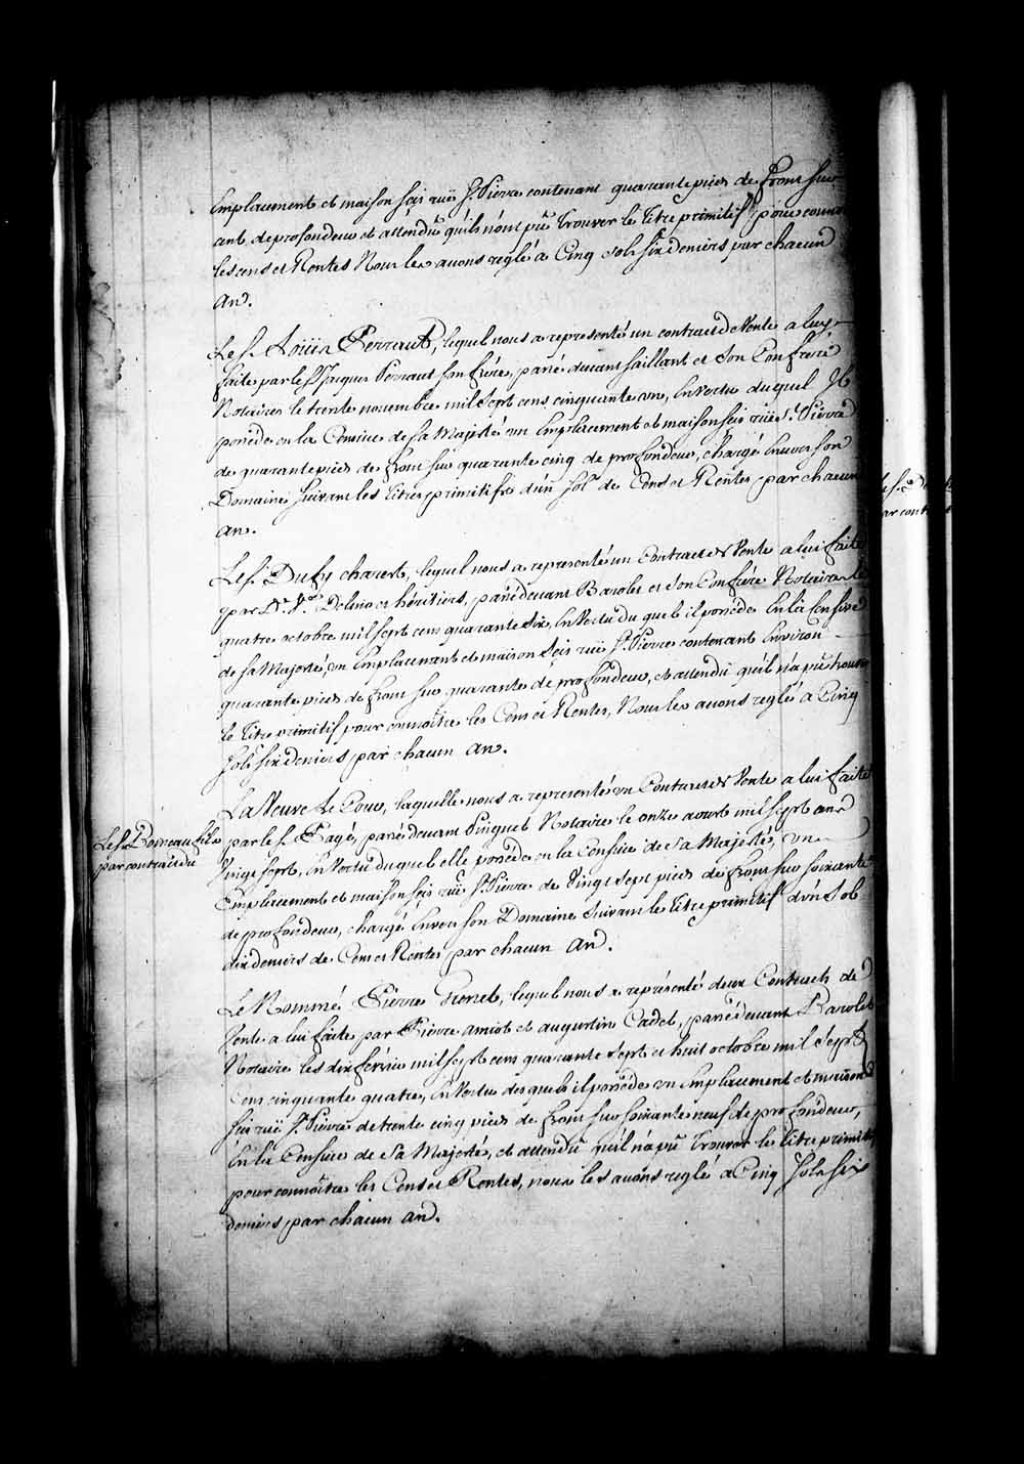 Emplacement et maison scis rüe St. Pierre contenant quarante pieds de front sur
ant de profondeur et attendu qu'ils n'ont pû trouver le titre primitif pour conn
les cens et Rentes Nous les avons reglé à Cinq sols six deniers par chacun
an.
Le S. Loüis Perraut, lequel nous a representé un contract de Vente a luy
faite par le S. Jacques Perraut son frère, passé devant Saillant et son Confrere
Notaires le trente novembre mil sept cens cinquante un, En vertu duquel Il
possède en la Censive de Sa Majesté un Emplacement et maison scis rüe St. Pierre
de quarante pieds de front sur quarante cinq de profondeur, chargé Envers son
Domaine suivant les titres primitifs d'un sol de Cens et Rentes par chacun
an.
Le S. Dufy charest, lequel nous a representé un Contract de Vente a lui faite
par Delino et héritiers, passé devant Barolet et son Confrère Notaires le
quatre octobre mil sept cens quarante six, En Vertu du quel il possède En la Censive
de Sa Majesté, un Emplacement et maison Scis rüe St. Pierre contenant Environ
quarante pieds de front sur quarante de profondeur, et attendu qu'il n'a pû trouver
le titre primitif pour connoître les Cens et Rentes, Nous les avons reglé à Cinq
sols six deniers par chacun an.
La Veuve Le Cour, laquelle nous a representé un Contract de Vente a lui faite
par le S. Pagé, passé devant Pinguet Notaire le onze aoust mil sept cens
Vingt sept, En Vertu duquel elle possède en la Censive de Sa Majesté, un
Emplacement et maison scis rüe St. Pierre de Vingt sept pieds de front sur soixante
de profondeur, chargé Envers son Domaine Suivant le titre primitif d'un Sol
dix deniers de Cens et Rentes par chacun an.
Le Nommé Pierre Trenet, lequel nous a représenté deux Contracts de
Vente a lui faite par Pierre amiot et augustin Cadet, passé devant Barolet
Notaire les dix février mil sept cens quarante sept et huit octobre mil Sept
Cens cinquante quatre, En Vertu desquels il possède un Emplacement et maison
scis rüe St. Pierre de trente cinq pieds de front sur soixante neuf de profondeur,
En la Censive de Sa Majesté, et attendu qu'il n'a pû trouver le titre primitif
pour connoître les Cens et Rentes, nous les avons reglé à Cinq Sols six
deniers par chacun an.
Le S. fils
par contract de